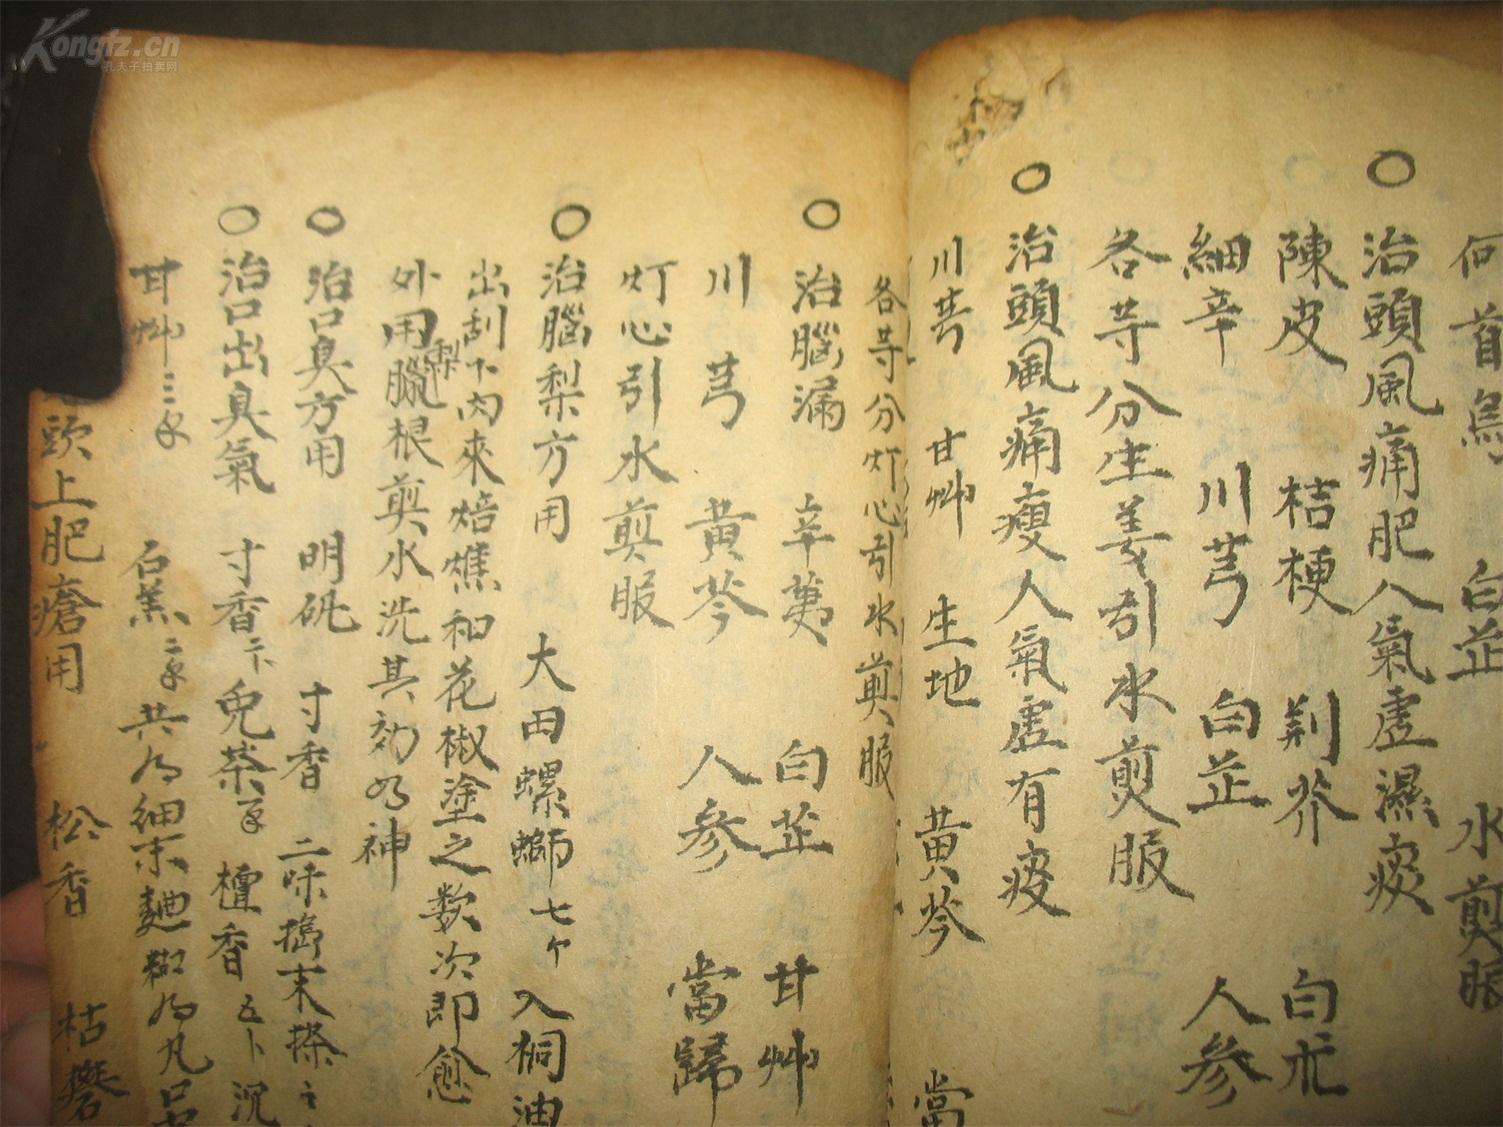 Kongfz.cn
孔夫子拍卖网
何首烏 白芷 水煎服
○治頭風痛肥人氣虛濕痰
陳皮 桔梗 荆芥 白朮
細辛 川芎 白芷 人參
各等分生姜引水煎服
○治頭風痛瘦人氣虛有痰
川芎 甘艸 生地 黄芩 當
各等分灯心引水煎服
○治腦漏 辛荑 白芷 甘艸
川芎 黄芩 人參 當歸
灯心引水煎服
○治腦梨方用 大田螺螄七个 入桐油
出刮下肉來焙燋和花椒塗之数次即愈
外用臘梨根煎水洗其効如神
○治口臭方用 明矾 寸香 二味搗末搽之
○治口出臭氣 寸香 兒茶 檀香 沉
甘艸 石羔 共為細末麺糊為丸口
頭上肥瘡用 松香 枯礬